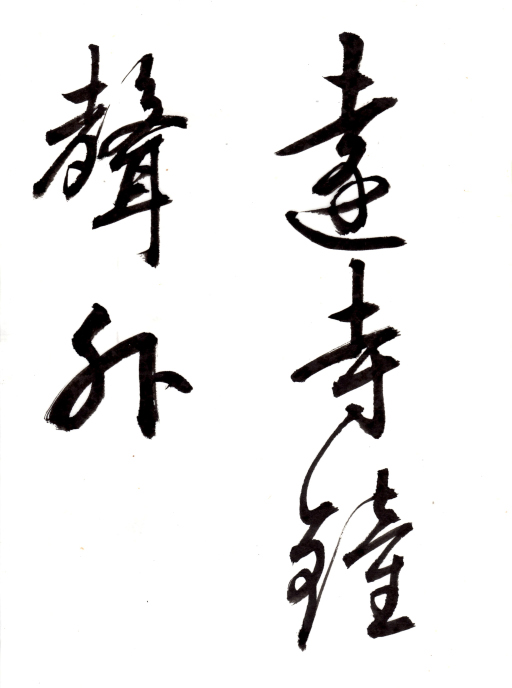 遠寺鐘
聲外